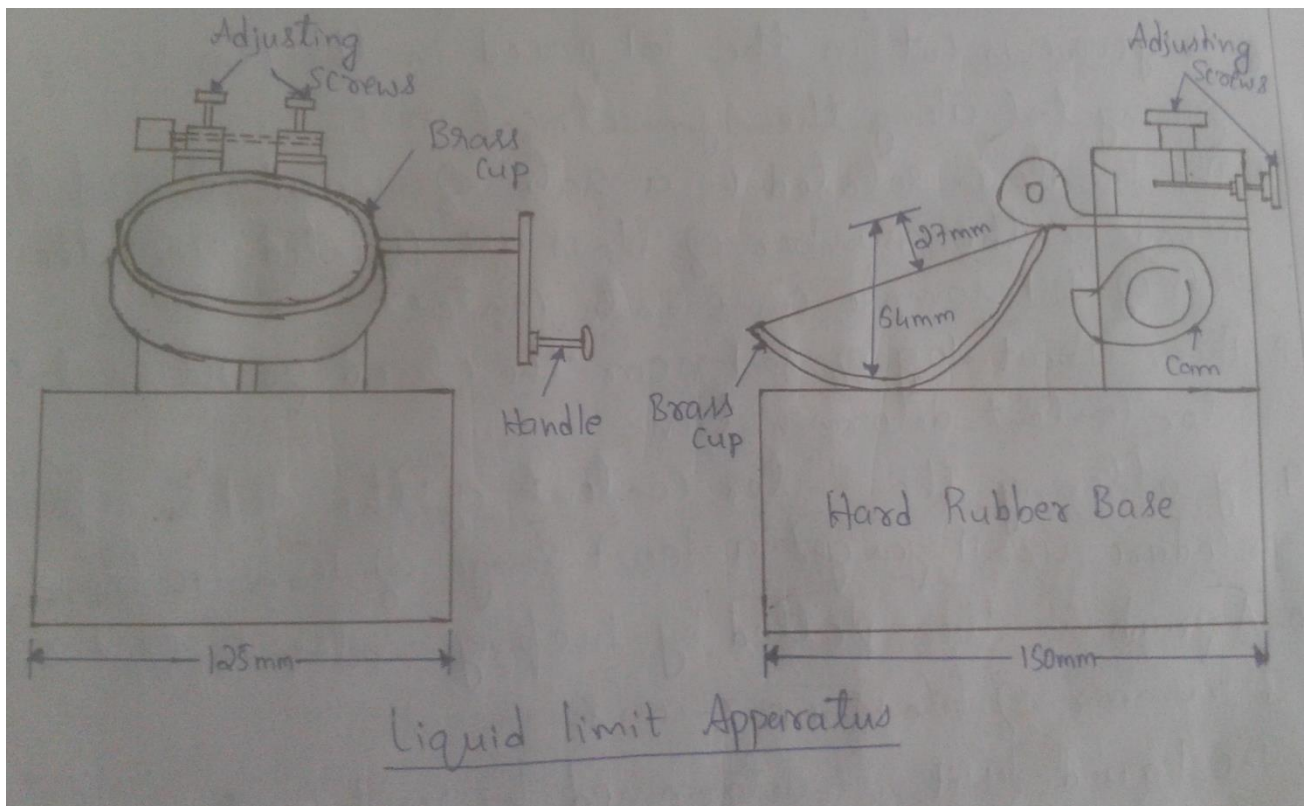 Adjusting
Screws
Brass
Cup
Handle
125mm
Adjusting
Screws
27mm
54mm
Brass
Cup
Cam
Hard Rubber Base
150mm
Liquid limit Apparatus